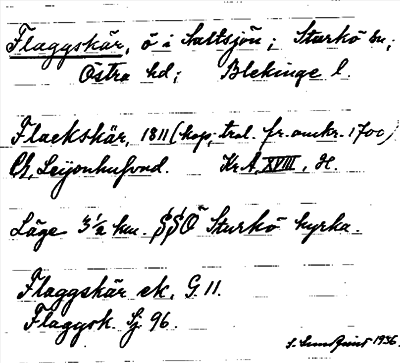 Flaggskär, ö i Saltsjön; Sturkö sn;
Östra hd; Blekinge l.
Flackskär, 1811 (kop, trol. fr. omkr. 1700)
C. Leijonhufvud. Kr. A, XVIII, H.
Läge 3½ km. SSÖ Sturkö kyrka.
Flaggskär ek. G. 11.
Flaggsk. Sj 96.
S. Lundquist 1936.